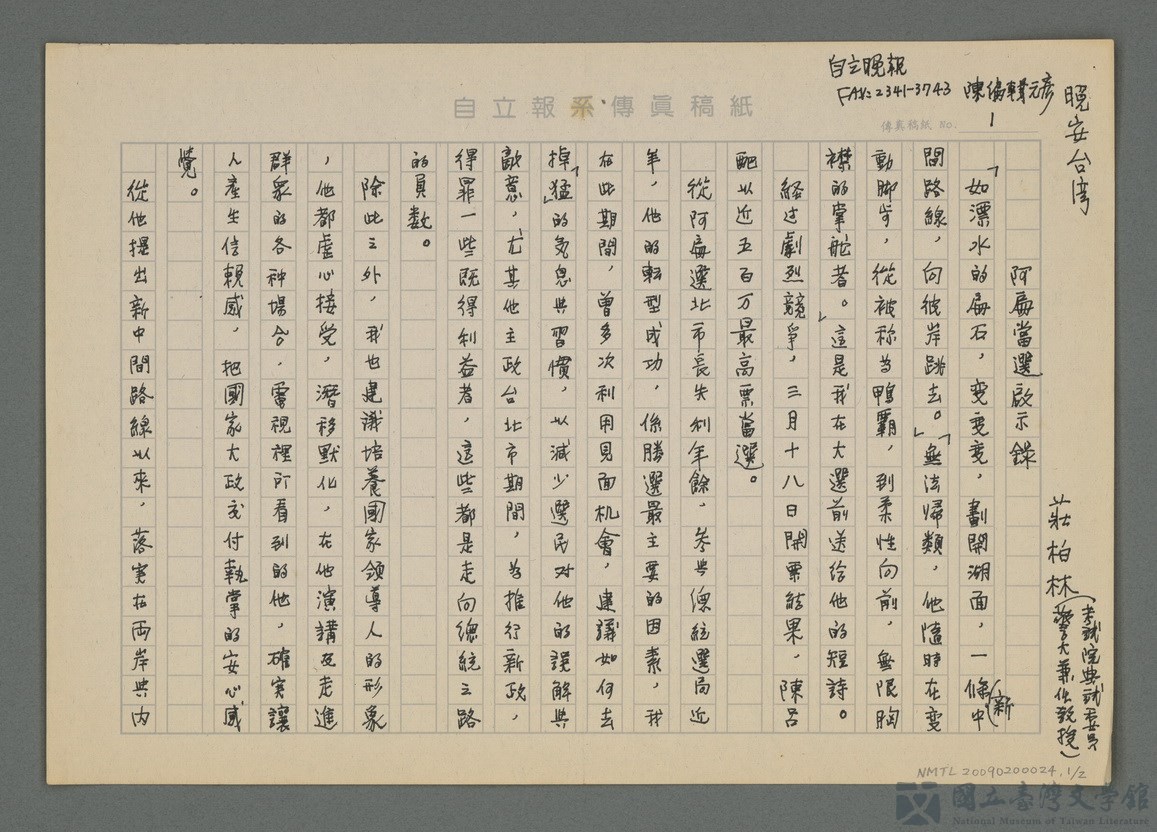 自立晚報
FAX: 2341-3743 陳編輯元彥
自立報系傳眞稿紙
傳真稿紙 No.
1
晚安台湾
阿扁當選啟示錄
莊柏林(考試院典試委員
警大兼任教授)
「如漂水的扁石,变变变,劃開湖面,一條(新)中
間路線,向彼岸跳去。」「無法歸類,他隨時在变
動脚步,從被称為鴨霸,到柔性向前,無限胸
襟的掌舵者。」這是我在大選前送给他的短詩。
経过劇烈競爭,三月十八日開票結果,陳呂
配以近五百万最高票當選。
從阿扁選北市長失利年餘,參与總統選局近
年,他的転型成功,係勝選最主要的因素,我
在此期間,曾多次利用見面机會,建議如何去
掉「猛」的気息與習慣,以減少選民对他的誤解與
敵意,尤其他主政台北市期間,為推行新政,
得罪一些既得利益者,這些都是走向總統之路
的員数。
除此之外,我也建議培養國家領導人的形象
,他都虛心接受,潛移默化,在他演講及走進
群衆的各种場合,電視裡所看到的他,確实讓
人產生信賴感,把國家大政交付執掌的安心感
覺。
從他提出新中間路線以來,落实在両岸與内
NMTL 20090200024, 1/2
國立臺灣文學館
National Museum of Taiwan Literature